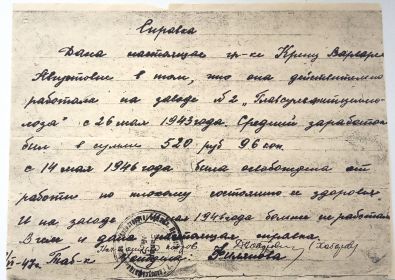 Справка
Дана настоящая гр-ке Кренц Варваре
Августовне в том, что она действительно
работала на заводе №2 "Главсульфитцелло-
лоза" с 26 мая 1943 года. Средний заработок
был в сумме 520 руб 96 коп.
с 14 мая 1946 года была освобождена от
работы по плохому состоянию ее здоровья
И на заводе мая 1946 года больше не работала
В чем и дана настоящая справка.
(Хабаров)
47 г. Таб-к